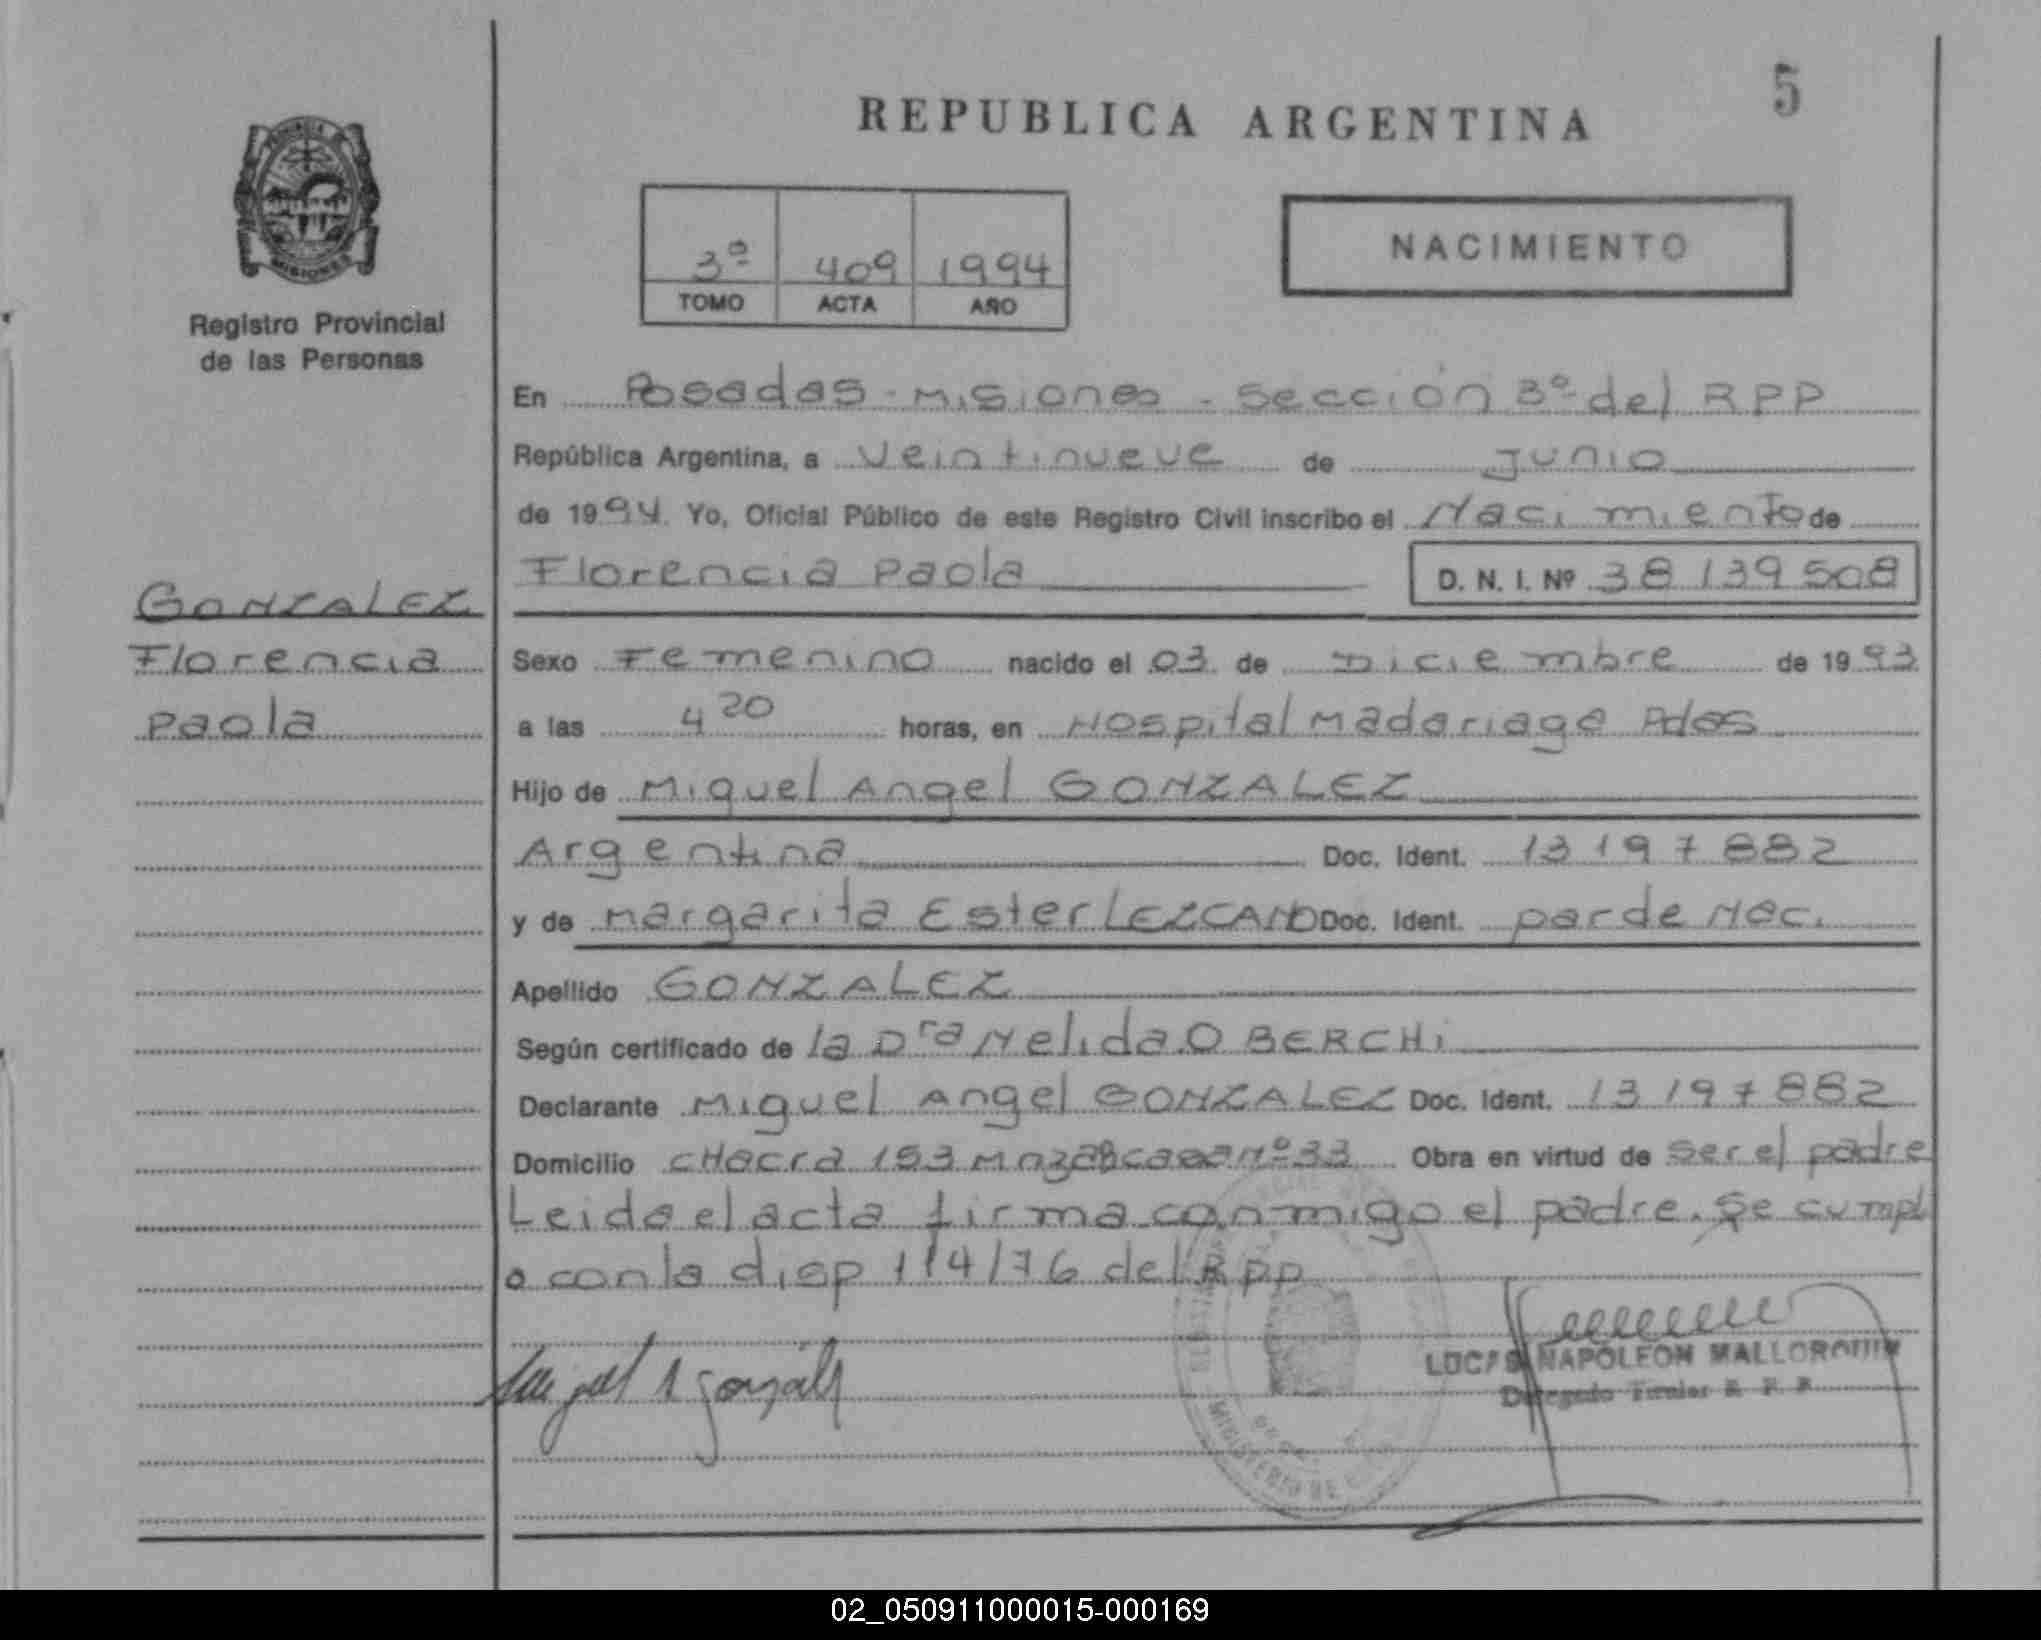 REPUBLICA ARGENTINA
5
PROVINCIA
MISIONES
Registro Provincial
de las Personas
3º 409 1994
TOMO ACTA AÑO
NACIMIENTO
En Posadas - Misiones - Sección 3º del RPP
República Argentina, a Veintinueve de Junio
de 1994 Yo, Oficial Público de este Registro Civil inscribo el Nacimiento de
Florencia Paola D. N. I. Nº 38139508
GONZALEZ
Florencia
Paola
Sexo Femenino nacido el 03 de Diciembre de 1993
a las 4 20 horas, en Hospital Madariaga Pdas
Hijo de Miguel Angel GONZALEZ
Argentina Doc. Ident. 13197882
y de Margarita Ester LEZCANO Doc. Ident. par de Nac.
Apellido GONZALEZ
Según certificado de la Dra Nelida O BERCHi
Declarante Miguel Angel GONZALEZ Doc. Ident. 13197882
Domicilio CHacra 153 Nº 33 Obra en virtud de ser el padre
Leida el acta firma conmigo el padre. Se cumpl
o con la disp 114/76 del RPP
Miguel A Gonzalez
LUCAS NAPOLEON MALLORQUIN
Delegado Titular R. P. P.
MINISTERIO DE
02_050911000015-000169